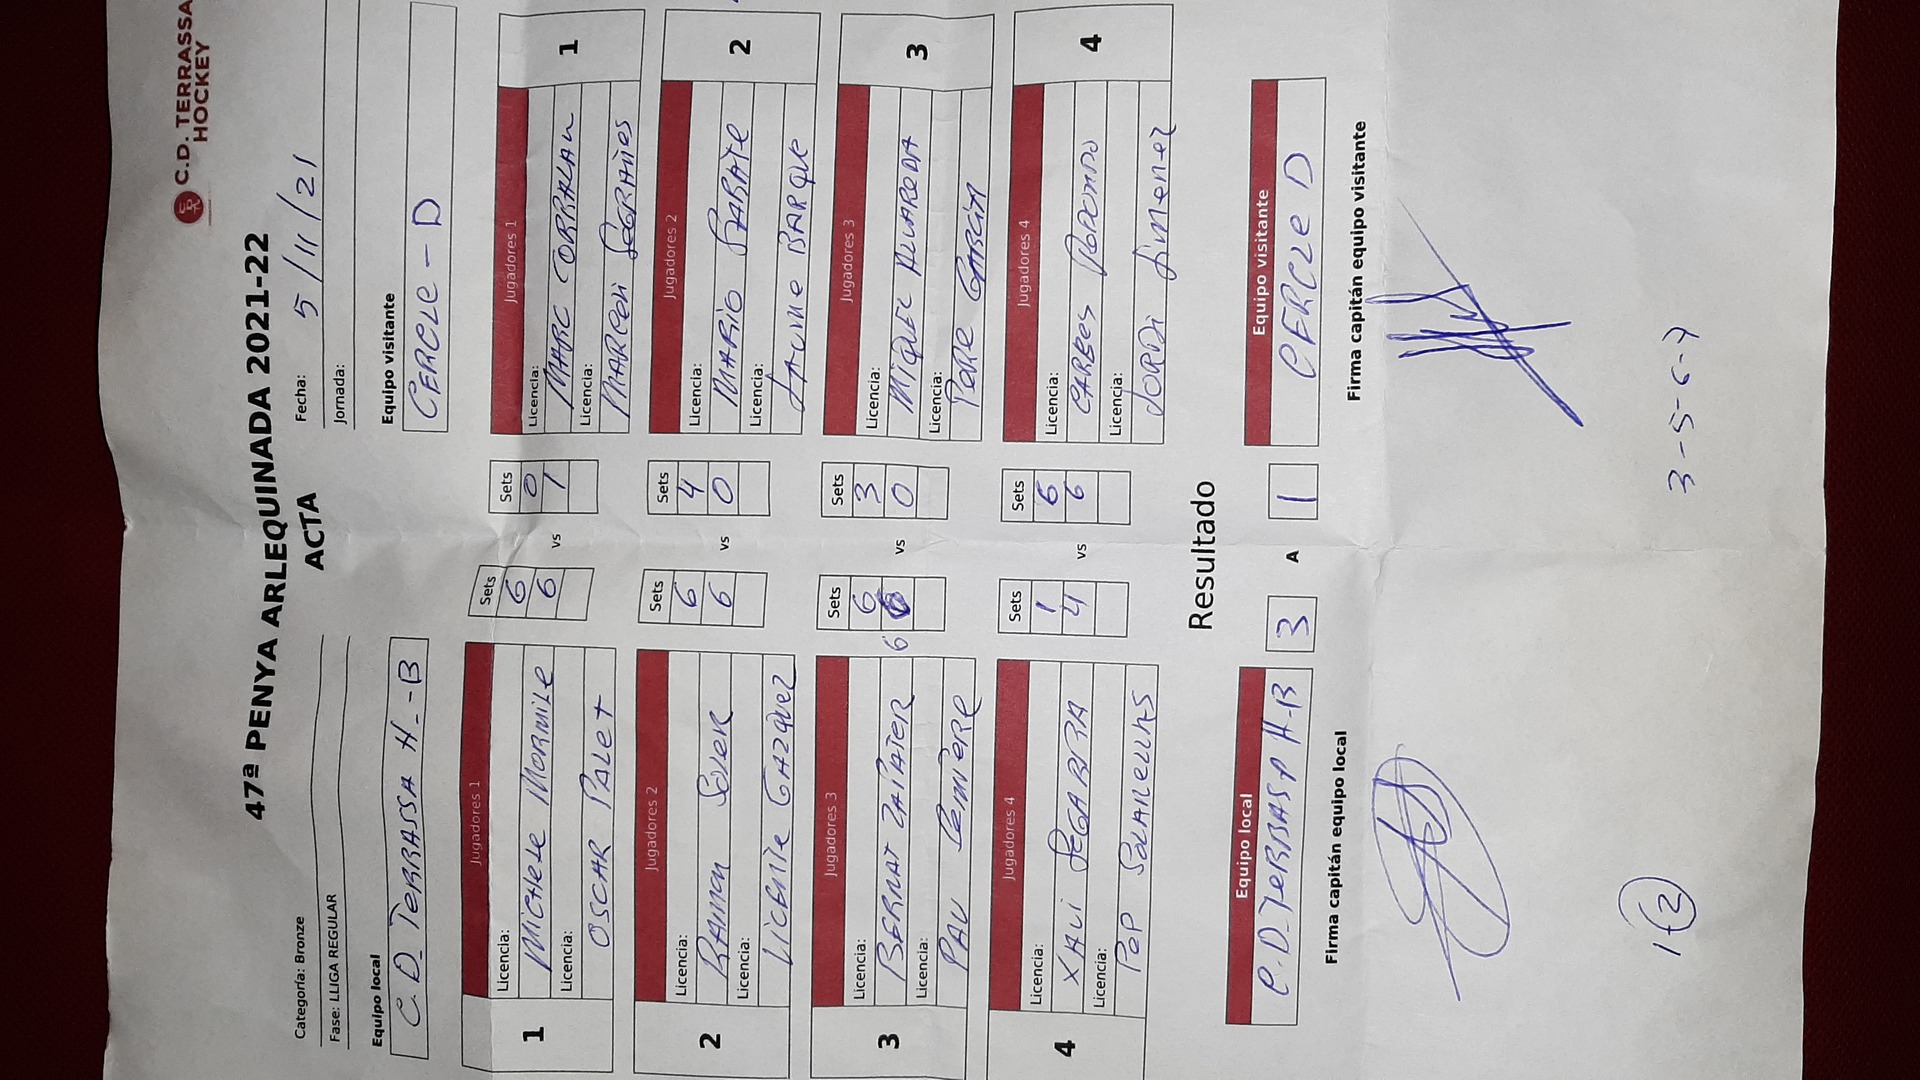 C.D. TERRASSA
HOCKEY
47ª PENYA ARLEQUINADA 2021-22
ACTA
Categoría: Bronze
Fecha: 5/11/21
Fase: LLIGA REGULAR
Jornada:
Equipo local
Equipo visitante
C.D. TERRASSA H.-B
CERCLE - D
Jugadores 1 Sets Sets Jugadores 1
1 Licencia: 6 vs 0 Licencia: 1
MICHELE MORMILE 6 1 MARC CORRALAN
Licencia: Licencia:
OSCAR PALET
Jugadores 2 Sets Sets Jugadores 2
2 Licencia: 6 vs 4 Licencia: 2
RAMON SOLER 6 0 MARIO SARATE
Licencia: Licencia:
VICENTE GAZQUEZ JAUME BARQUE
Jugadores 3 Sets Sets Jugadores 3
3 Licencia: 6 vs 3 Licencia: 3
BERNAT ZAPATER 6 0 MIQUEL ALVAREDA
Licencia: Licencia:
PAU PERE GARCIA
Jugadores 4 Sets Sets Jugadores 4
4 Licencia: 1 vs 6 Licencia: 4
XAVI SEGARRA 4 6 CARLES
Licencia: Licencia:
PEP SOLANELLAS JORDI JIMENEZ
Resultado
Equipo local Equipo visitante
C.D. TERRASSA H-B 3 A 1 CERCLE D
Firma capitán equipo local Firma capitán equipo visitante
3-5-6-7